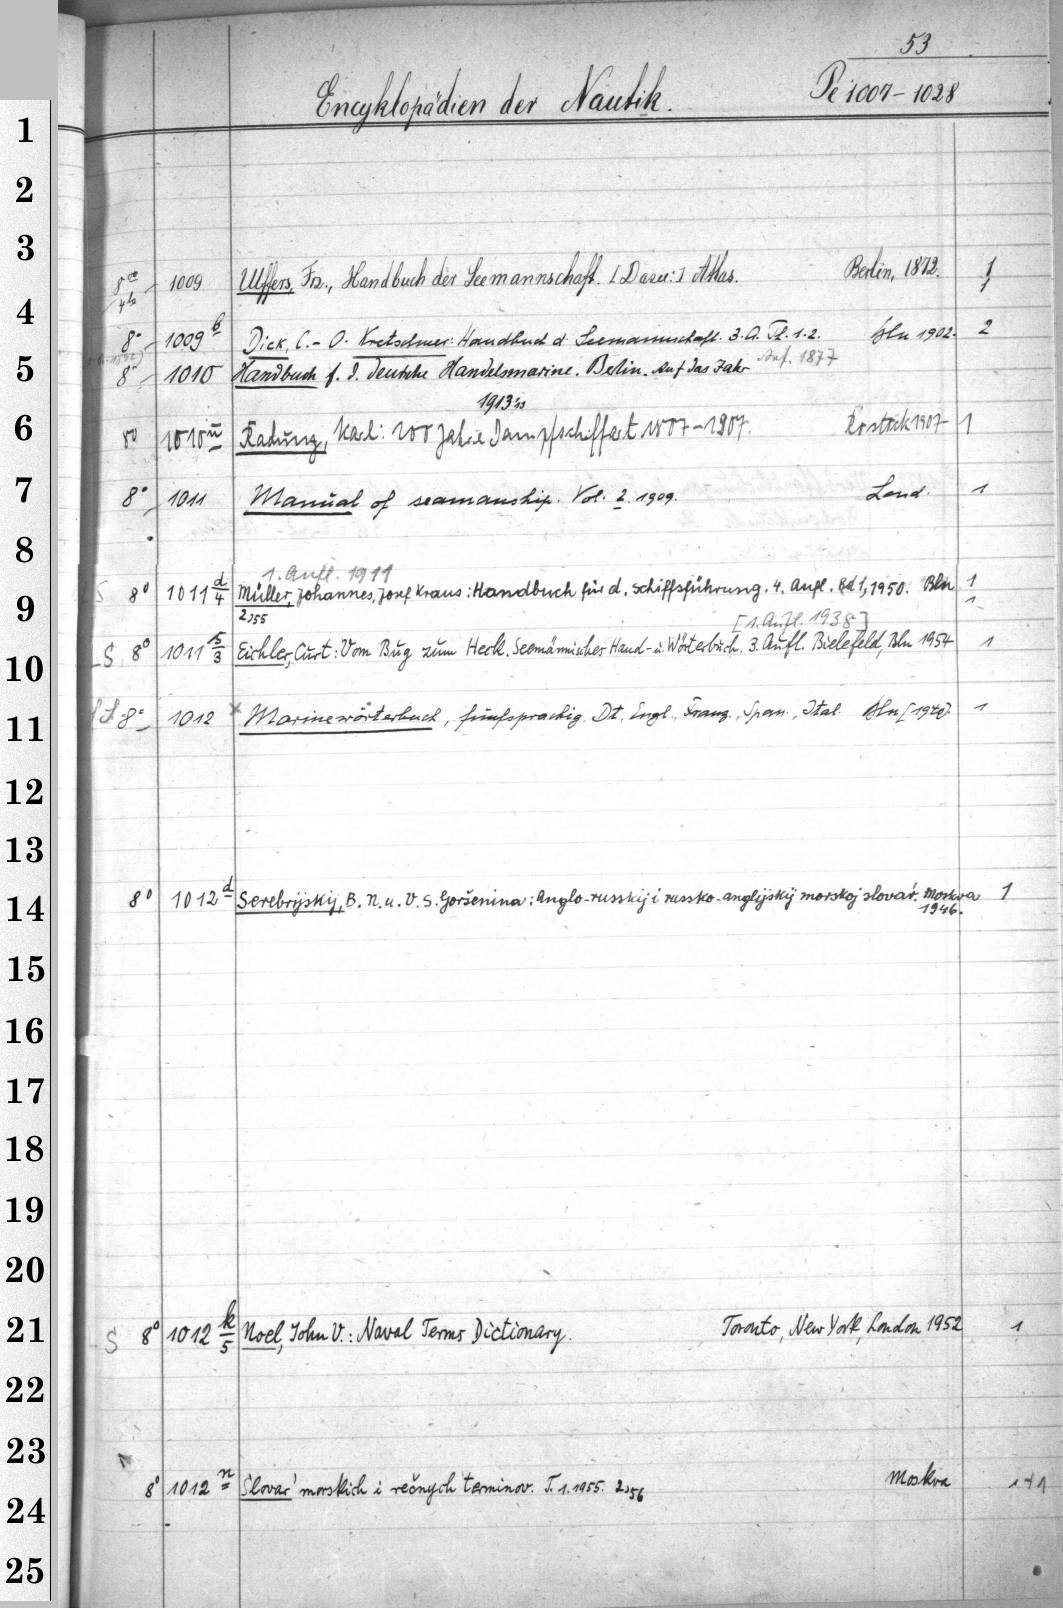 53
Encyklopädien der Nautik. Pe 1007-1028
1
2
3
8° 1009 Ulffers, Frz., Handbuch der Seemannschaft. [Dazu:] Atlas. Berlin, 1872. 1
4° 1
4
8° 1009 b Dick, C. - O. Kretschmer: Handbuch d. Seemannschaft. 3. A. Tl. 1-2. Bln 1902. 2
5
8° 1010 Handbuch f. d. deutsche Handelsmarine. Berlin. Auf das Jahr Auf. 1877
1913 ss
6
8° 1010 u Radung, Karl: 100 Jahre Dampfschiffart 1807-1907. Rostock 1907 1
7
8° 1011 Manual of seamanship. Vol. 2. 1909. Lond. 1
8
1. Aufl. 1911
S 8° 1011 d/4 Müller, Johannes, Josef Kraus: Handbuch für d. Schiffsführung. 4. Aufl. Bd 1, 1950. Bln 1
9
2,55 1
[1. Aufl. 1938]
10
S 8° 1011 s/3 Eichler, Curt: Vom Bug zum Heck. Seemännisches Hand- u. Wörterbuch. 3. Aufl. Bielefeld, Bln 1954 1
11
8° 1012 x Marinewörterbuch, fünfsprachig. Dt., Engl., Franz., Span., Ital. Bln [1940] 1
12
13
14
8° 1012 d Serebrijskij, B. N. u. V. S. Goršenina: Anglo-russkij i russko-anglijskij morskoj slovař. Moskva 1
1946.
15
16
17
18
19
20
21
S 8° 1012 k/5 Noel, John V.: Naval Terms Dictionary. Toronto, New York, London 1952 1
22
23
8° 1012 n Slovař morskich i rečnych terminov. T. 1. 1955. 2,56 Moskva 1+1
24
25